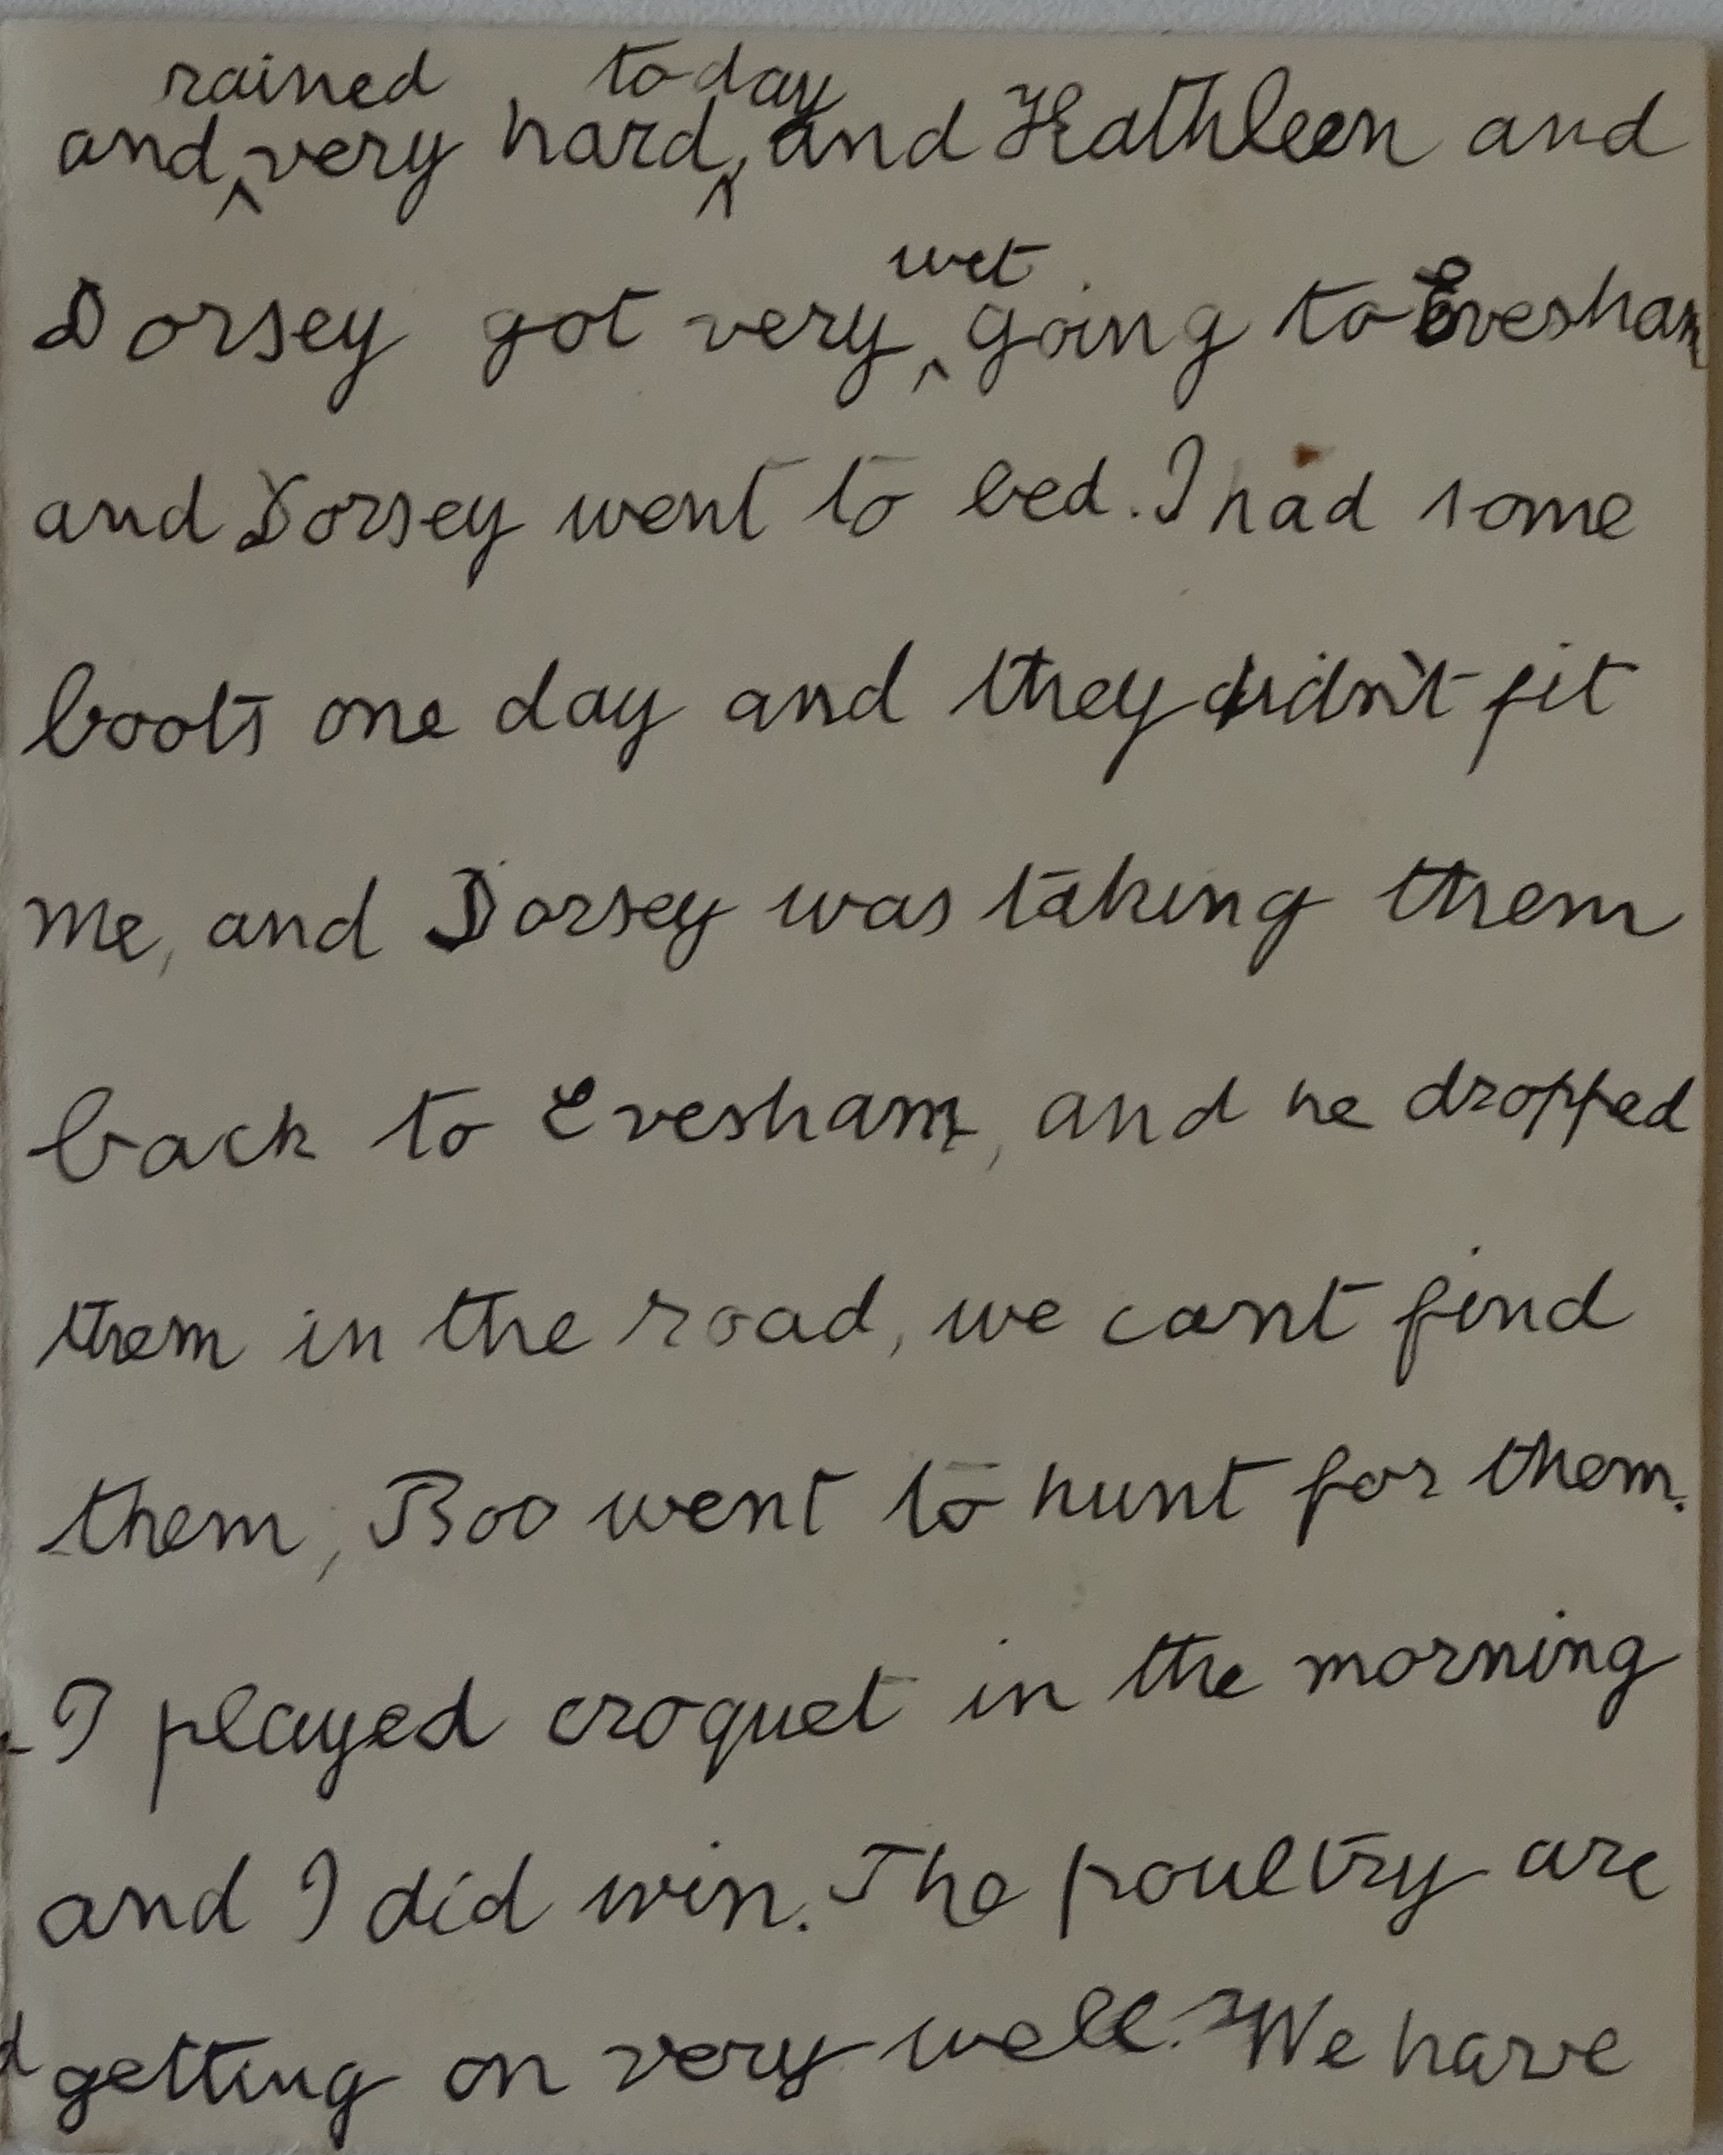 rained today
and ^ very hard, ^ and Kathleen and
wet
Dorsey got very ^ going to Evesham
and Dorsey went to bed. I had some
boots one day and they didn't fit
me, and Dorsey was taking them
back to Evesham, and he dropped
them in the road, we cant find
them, Boo went to hunt for them.
I played croquet in the morning
and I did win. The poultry are
getting on very well. We have